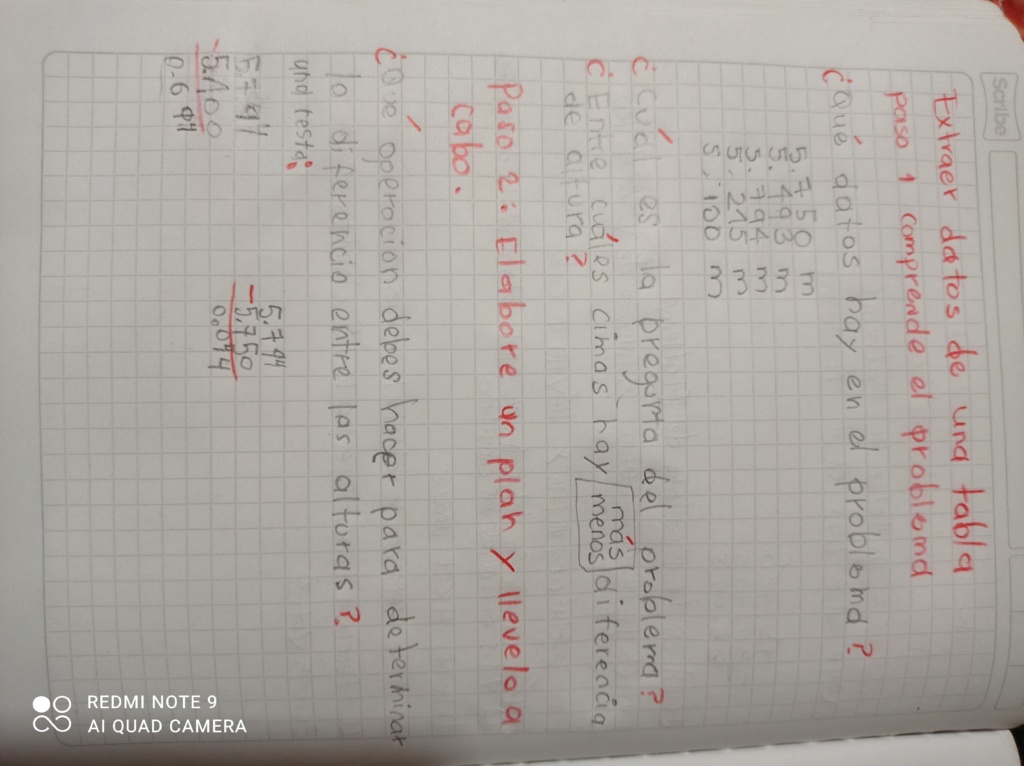 Scribe
Extraer datos de una tabla
paso 1 comprende el problema
¿Qué datos hay en el problema?
5.750 m
5.493 m
5.794 m
5.215 m
5.100 m
¿Cuál es la pregunta del problema?
¿Entre cuáles cimas hay más diferencia
menos
de altura?
Paso 2: Elabore un plan y llevelo a
cabo.
¿Qué operación debes hacer para determinar
la diferencia entre las alturas?
una resta:
5.794
-5.100
0.694
5.794
-5.750
0.044
REDMI NOTE 9
AI QUAD CAMERA